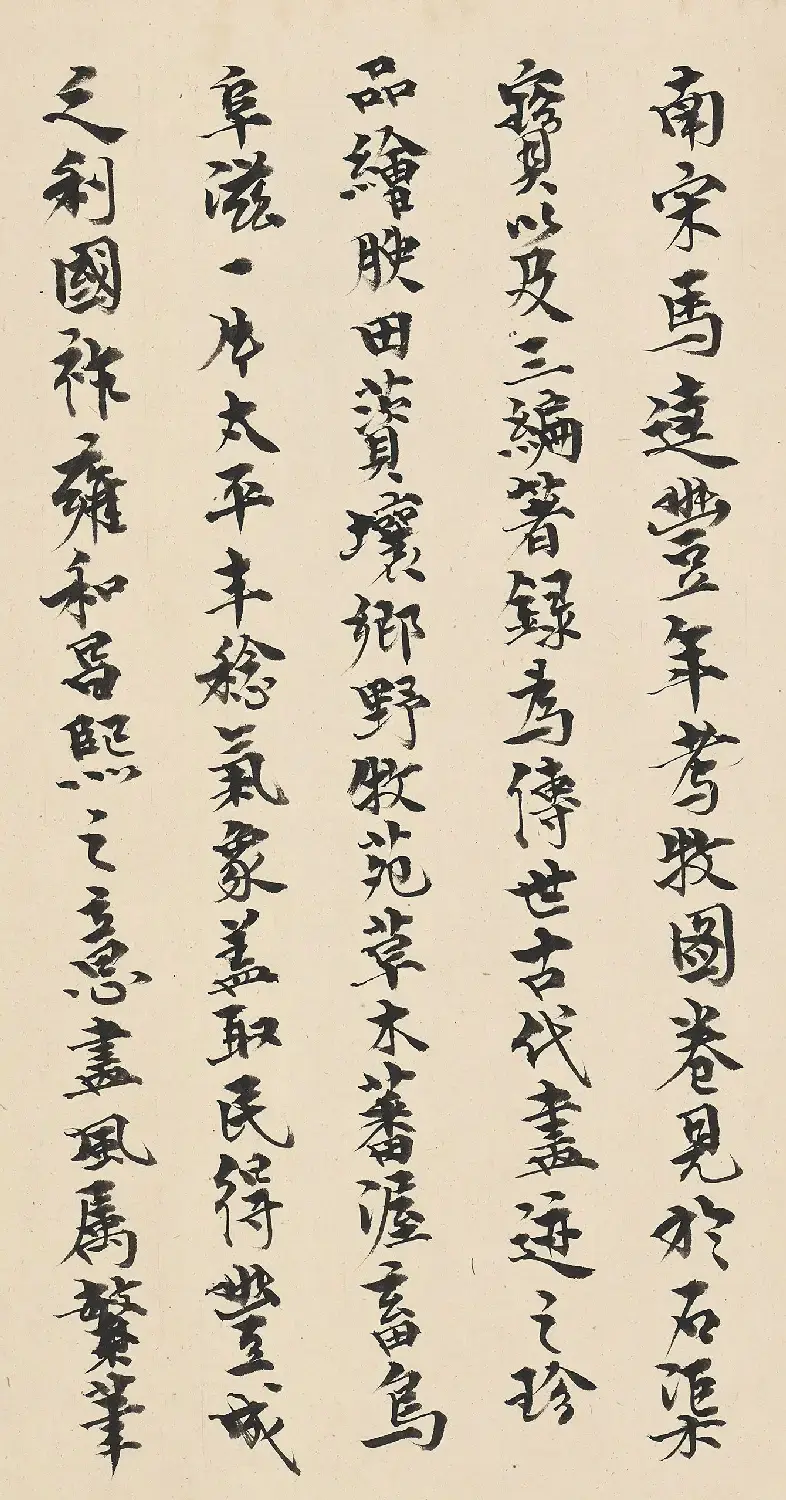 南宋馬逵豐年蕃牧圖卷見於石渠
寶笈三編著録爲傳世古代畫迹之珍
品繪腴田賁壤鄉野牧苑草木蕃渥畜鳥
阜滋一片太平丰稔氣象蓋取民得豐城
之利國祚雍和昌熙之意畫風屬繁筆